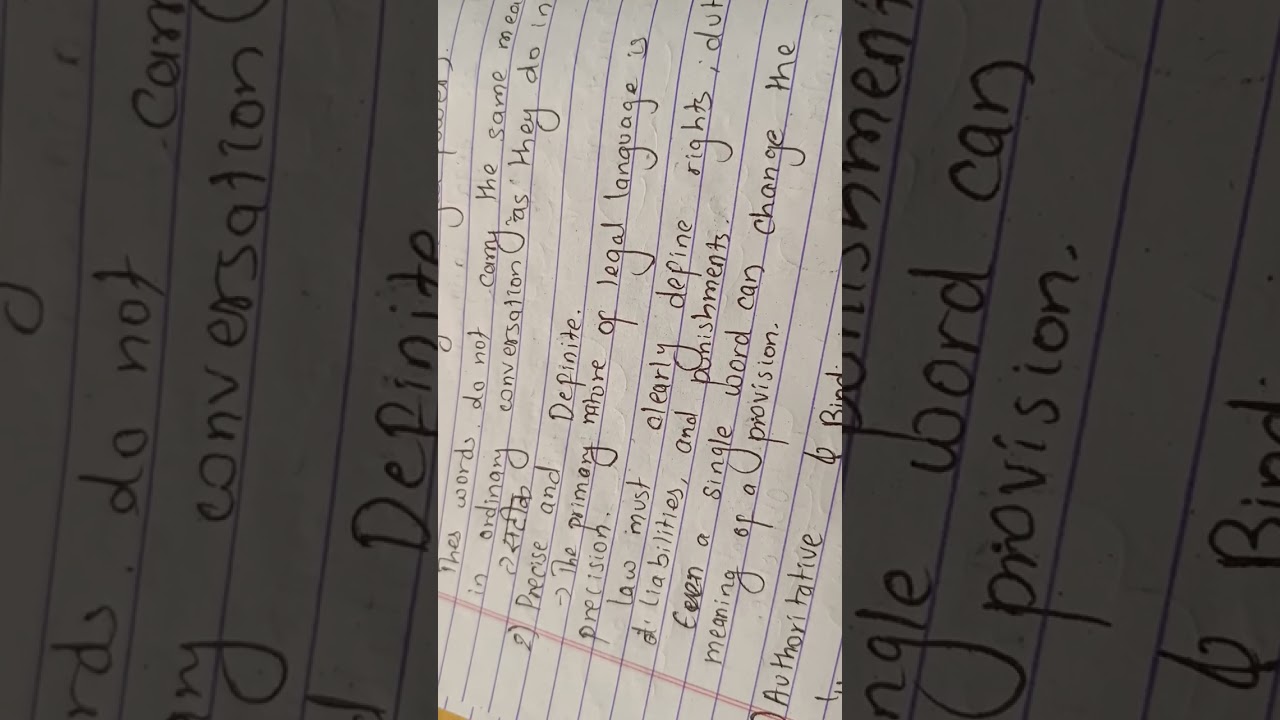 thes words do not carry the same mea
in ordinary conversation as they do in
→ सटीक
2) Precise and Definite.
→ The primary nature of legal language is
precision.
law must clearly define rights, dut
d. liabilities, and punishments.
Even a single word can change the
meaning of a provision.
) Authoritative & Bind